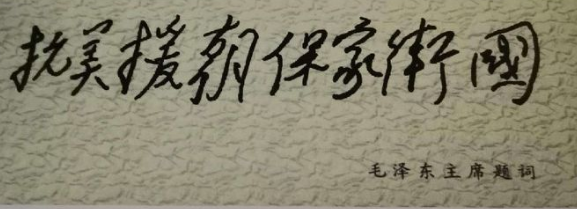 抗美援朝保家衛國
毛泽东主席题词